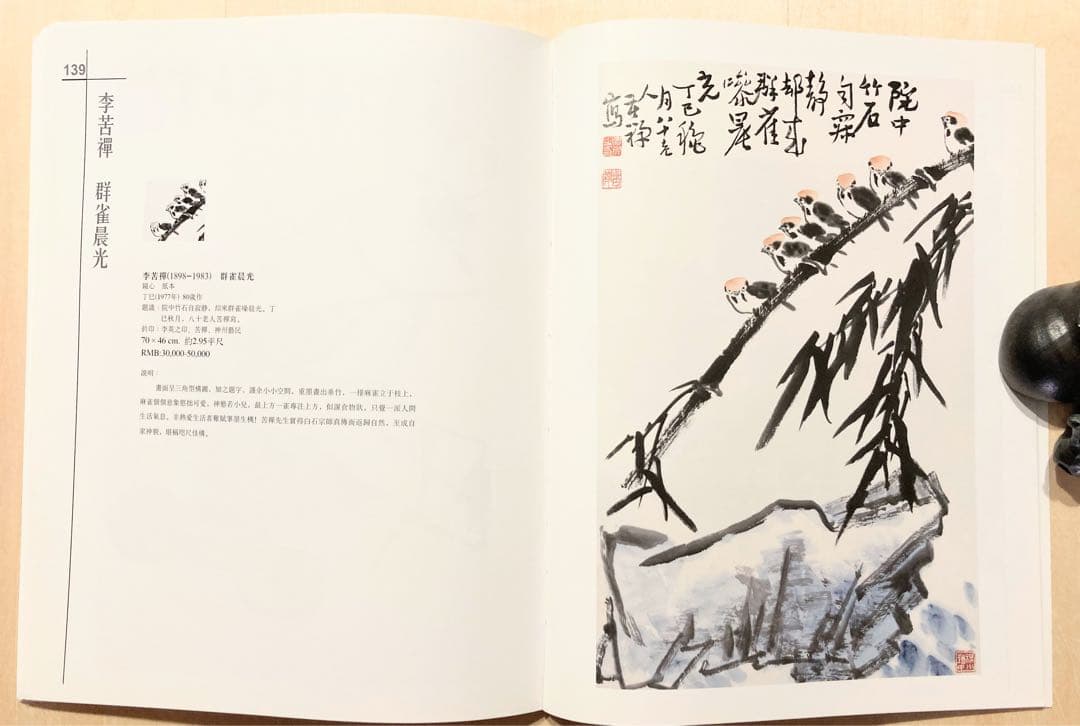 139
李苦禪 群雀晨光
李苦禪(1898-1983) 群雀晨光
鏡心 紙本
丁巳(1977年) 80歲作
題識：院中竹石自寂靜，却來群雀噪晨光。丁
巳秋月，八十老人苦禪寫。
鈐印：李英之印、苦禪、神州藝民
70×46 cm. 約2.95平尺
RMB:30,000-50,000
說明：
畫面呈三角型構圖，加之題字，護余小小空間，重墨畫出垂竹，一樣麻雀立于枝上，
麻雀個個意象憨拙可愛，神態若小兒，最上方一雀專注上方，似護食物狀，只覺一派人間
生活氣息。非熱愛生活者難賦筆墨生機！苦禪先生實得白石宗師真傳而返歸自然，至成自
家神貌，堪稱咫尺佳構。
院中
竹石
自寂
靜
却來
群雀
噪晨
光
丁巳秋
月八十老
人
苦禪
寫